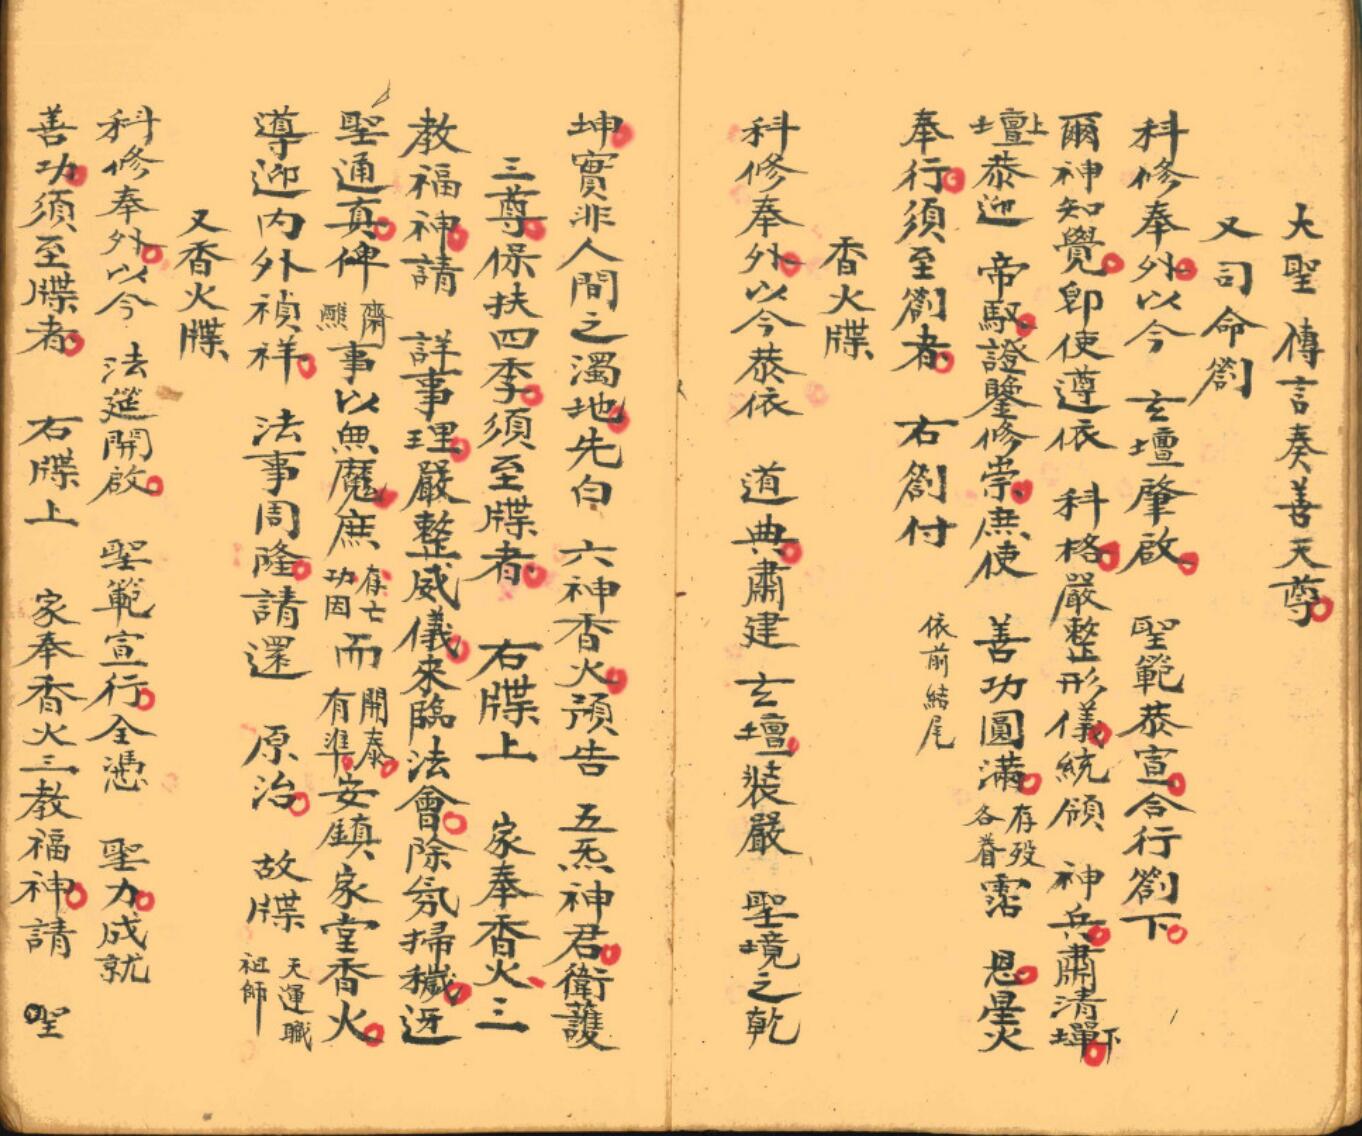 大聖 傳言奏善天尊
又司命劄
科修奉外以今 玄壇肇啟 聖範恭宣合行劄下
爾神知覺卽使遵依 科格嚴整形儀統領 神兵肅清壇下
壇上恭迎 帝馭證鑒修崇庶使 善功圓滿存歿各眷霑 恩星火
奉行須至劄者 右劄付 依前結尾
香火牒
科修奉外以今恭依 道典肅建玄壇裝嚴 聖境之乾
坤實非人間之濁地先白 六神香火預告 五炁神君衛護
三尊保扶四季須至牒者 右牒上 家奉香火三
教福神請 詳事理嚴整威儀來臨法會除氛掃穢迓
聖通真俾齋醮事以無魔庶存亡功因而開泰有準安鎮家堂香火
導迎內外禎祥 法事周隆請還 原治 故牒 天運職祖師
又香火牒
科修奉外以今 法筵開啟 聖範宣行全憑 聖力成就
善功須至牒者 右牒上 家奉香火三教福神請 聖